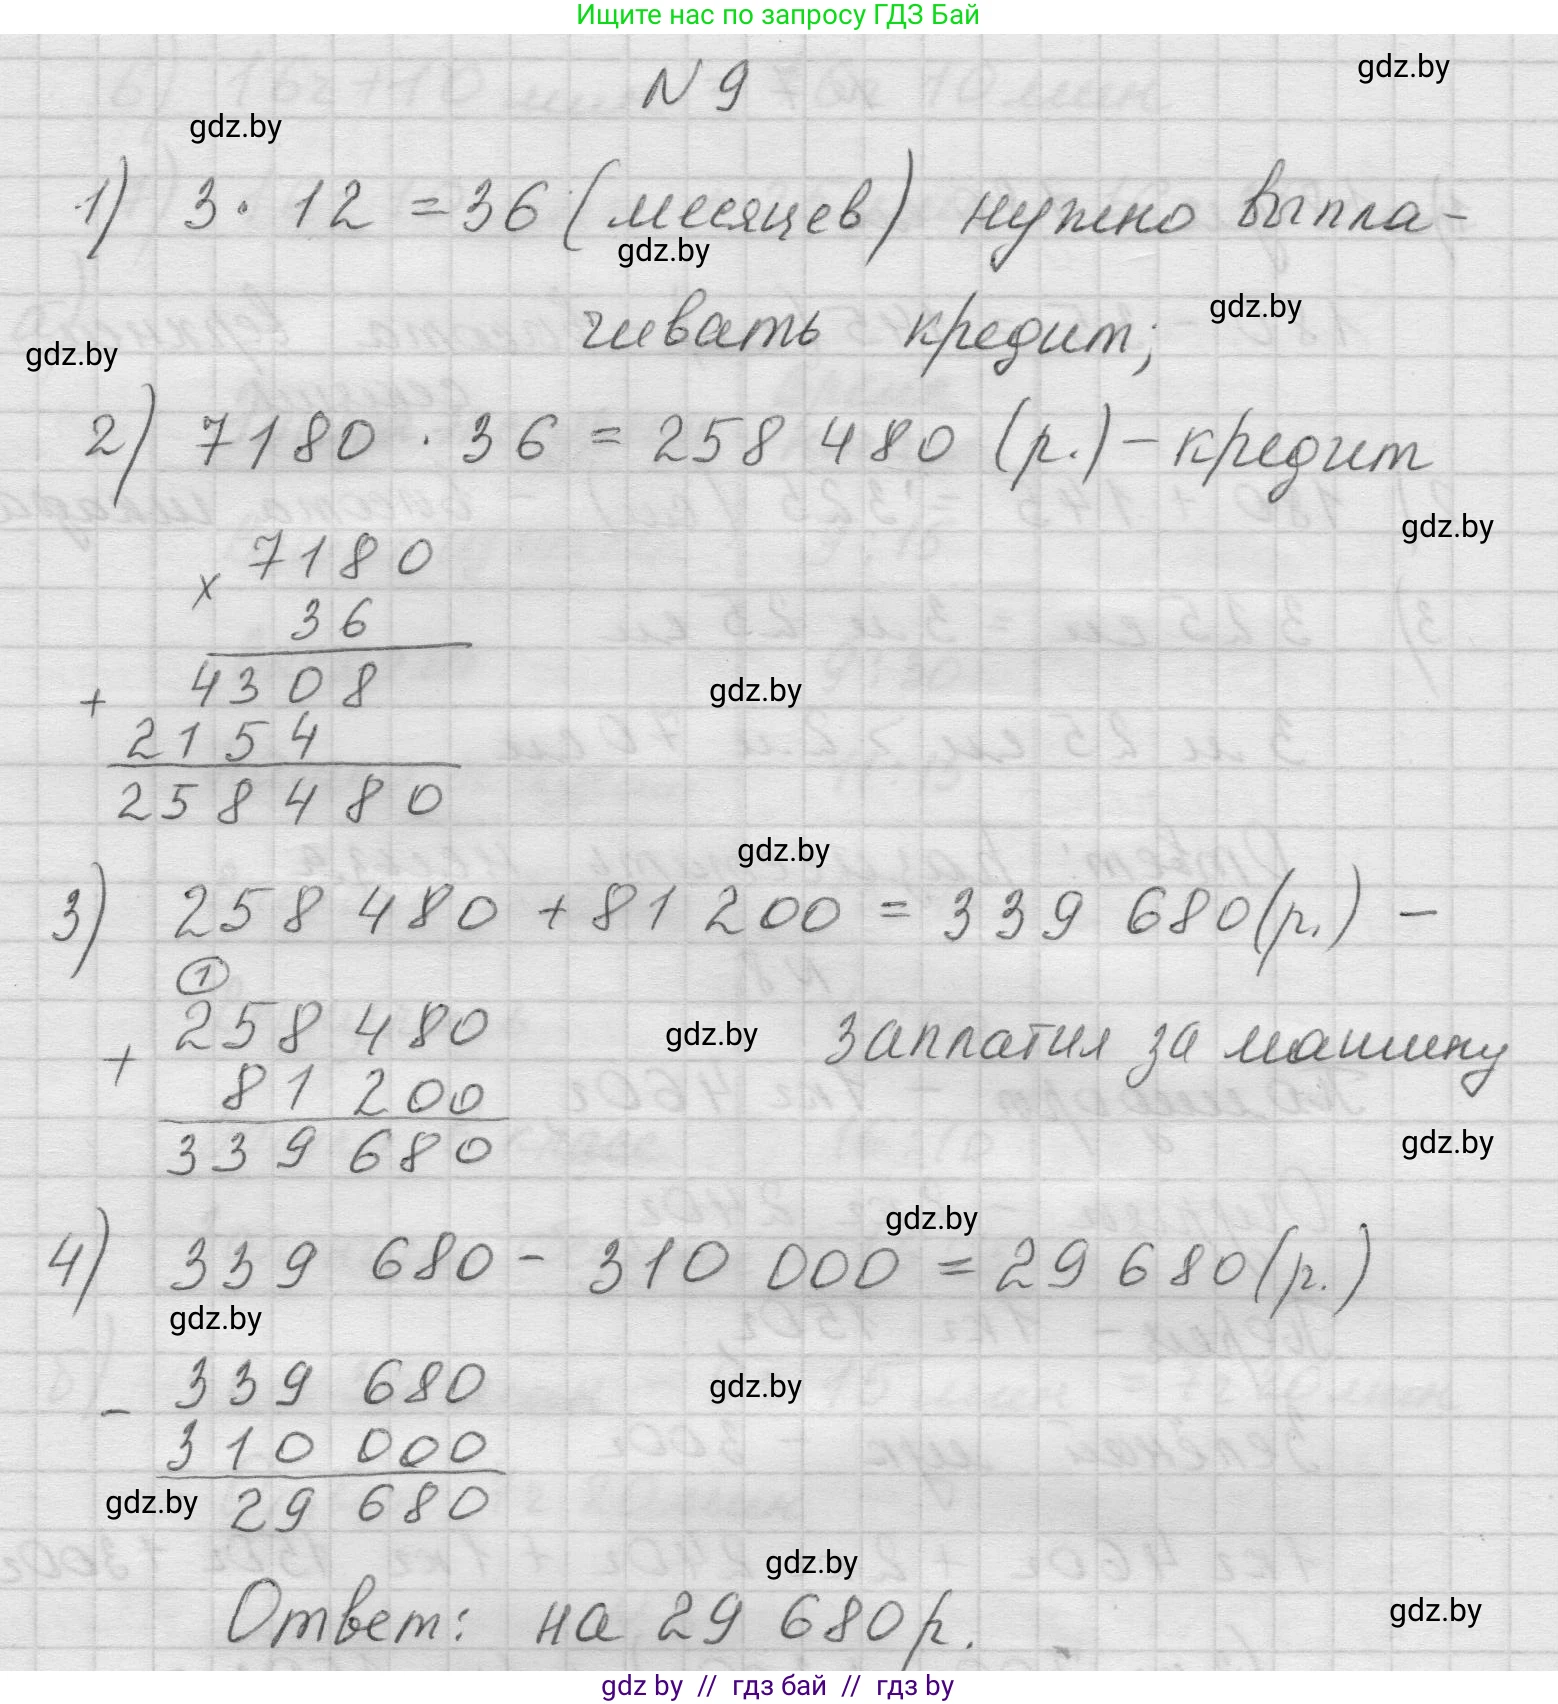 Ищите нас по запросу ГДЗ Бай
N 9
gdz.by
gdz.by
1) 3 · 12 = 36 (месяцев) нужно выпла-
gdz.by
чивать кредит;
gdz.by
gdz.by
2) 7180 · 36 = 258 480 (р.) – кредит
gdz.by
× 7180
36
+ 4308
gdz.by
2154
258480
gdz.by
3) 258 480 + 81 200 = 339 680 (р.) –
1
+ 258 480
gdz.by
заплатил за машину
81 200
339 680
gdz.by
gdz.by
4) 339 680 - 310 000 = 29 680 (р.)
gdz.by
- 339 680
gdz.by
310 000
gdz.by
29 680
gdz.by
Ответ: на 29 680 р.
gdz.by
gdz by // гдз бай // гдз by